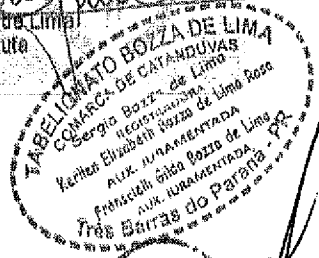 de Lima
TABELIONATO BOZZA DE LIMA
COMARCA DE CATANDUVAS
Sergio Bozza de Lima
REGISTRADOR
Elizabeth Bozza de Lima Rosa
AUX. JURAMENTADA
Gilda Bozza de Lima
AUX. JURAMENTADA
Três Barras do Paraná - PR